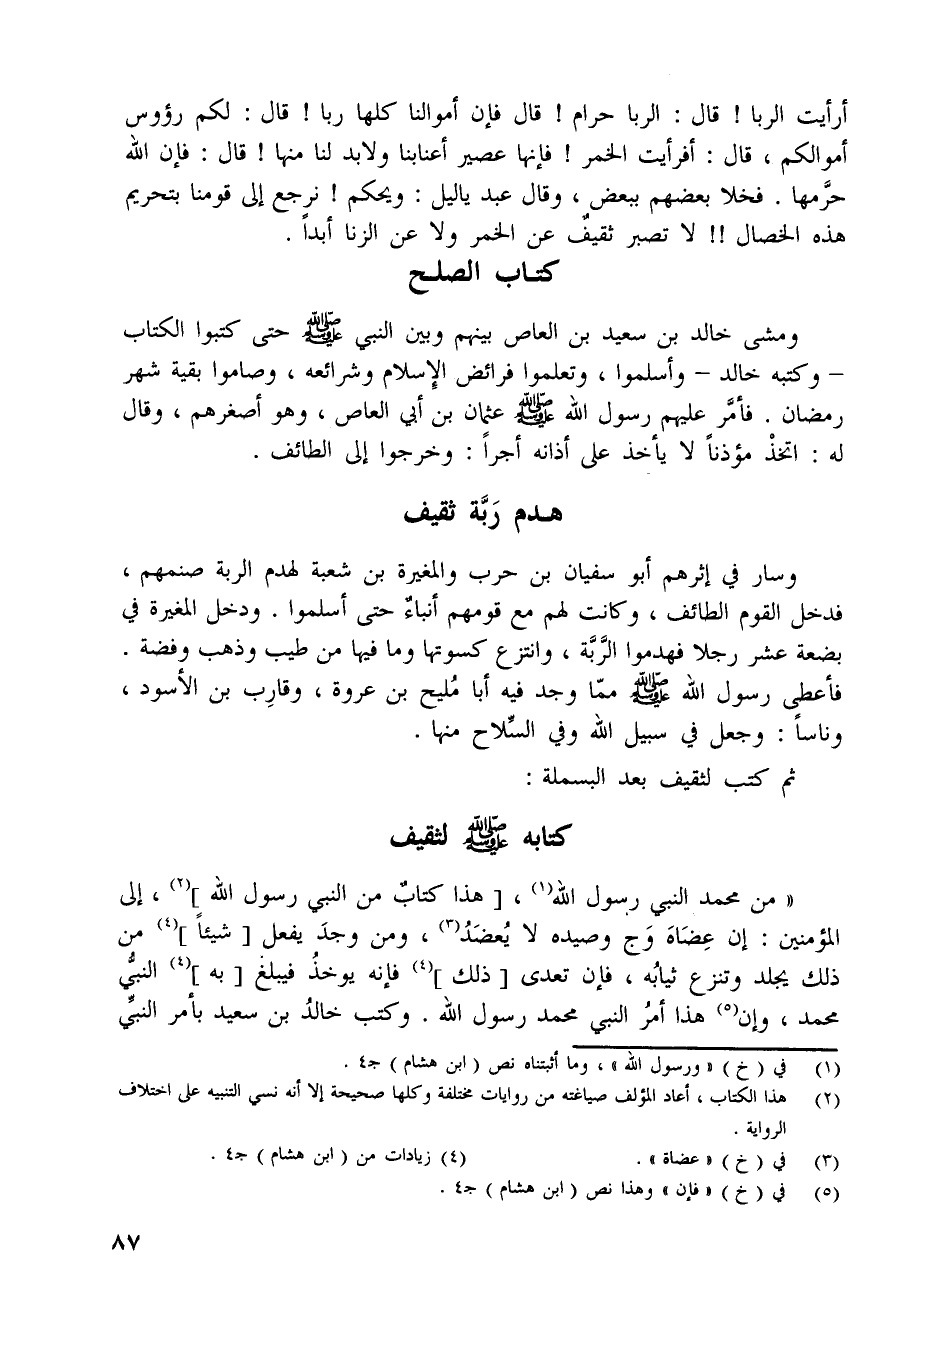 أرأيت الربا ! قال : الربا حرام ! قال فإن أموالنا كلها ربا ! قال : لكم رؤوس
أموالكم ، قال : أفرأيت الخمر ! فإنها عصير أعنابنا ولابد لنا منها ! قال : فإن الله
حرَّمها . فخلا بعضهم ببعض ، وقال عبد ياليل : ويحكم ! نرجع إلى قومنا بتحريم
هذه الخصال !! لا تصبر ثقيفٌ عن الخمر ولا عن الزنا أبداً .
كتاب الصلح
ومشى خالد بن سعيد بن العاص بينهم وبين النبي ﷺ حتى كتبوا الكتاب
– وكتبه خالد – وأسلموا ، وتعلموا فرائض الإسلام وشرائعه ، وصاموا بقية شهر
رمضان . فأمَّر عليهم رسول الله ﷺ عثمان بن أبي العاص ، وهو أصغرهم ، وقال
له : اتخذْ مؤذناً لا يأخذ على أذانه أجراً : وخرجوا إلى الطائف .
هدم رَبَّة ثقيف
وسار في إثرهم أبو سفيان بن حرب والمغيرة بن شعبة لهدم الربة صنمهم ،
فدخل القوم الطائف ، وكانت لهم مع قومهم أنباءٌ حتى أسلموا . ودخل المغيرة في
بضعة عشر رجلا فهدموا الرَّبَّة ، وانتزع كسوتها وما فيها من طيب وذهب وفضة .
فأعطى رسول الله ﷺ ممّا وجد فيه أبا مُليح بن عروة ، وقارِب بن الأسود ،
وناساً : وجعل في سبيل الله وفي السِّلاح منها .
ثم كتب لثقيف بعد البسملة :
كتابه ﷺ لثقيف
« من محمد النبي رسول الله(١) ، [ هذا كتابٌ من النبي رسول الله ](٢) ، إلى
المؤمنين : إن عِضَاهَ وَج وصيده لا يُعضَدُ(٣) ، ومن وجدَ يفعل [ شيئاً ](٤) من
ذلك يجلد وتنزع ثيابُه ، فإن تعدى [ ذلك ](٤) فإنه يوخذُ فيبلغ [ به ](٤) النبيُّ
محمد ، وإن(٥) هذا أمرُ النبي محمد رسول الله . وكتب خالدُ بن سعيد بأمر النبيِّ
(١) في ( خ ) « ورسول الله » ، وما أثبتناه نص ( ابن هشام ) جـ٤ .
(٢) هذا الكتاب ، أعاد المؤلف صياغته من روايات مختلفة وكلها صحيحة إلا أنه نسي التنبيه على اختلاف
الرواية .
(٣) في ( خ ) « عضاة » . (٤) زيادات من ( ابن هشام ) جـ٤ .
(٥) في ( خ ) « فإن » وهذا نص ( ابن هشام ) جـ٤ .
٨٧